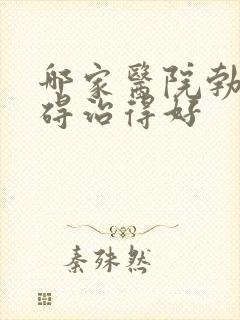 哪家醫院勃
碍治得好
秦殊然